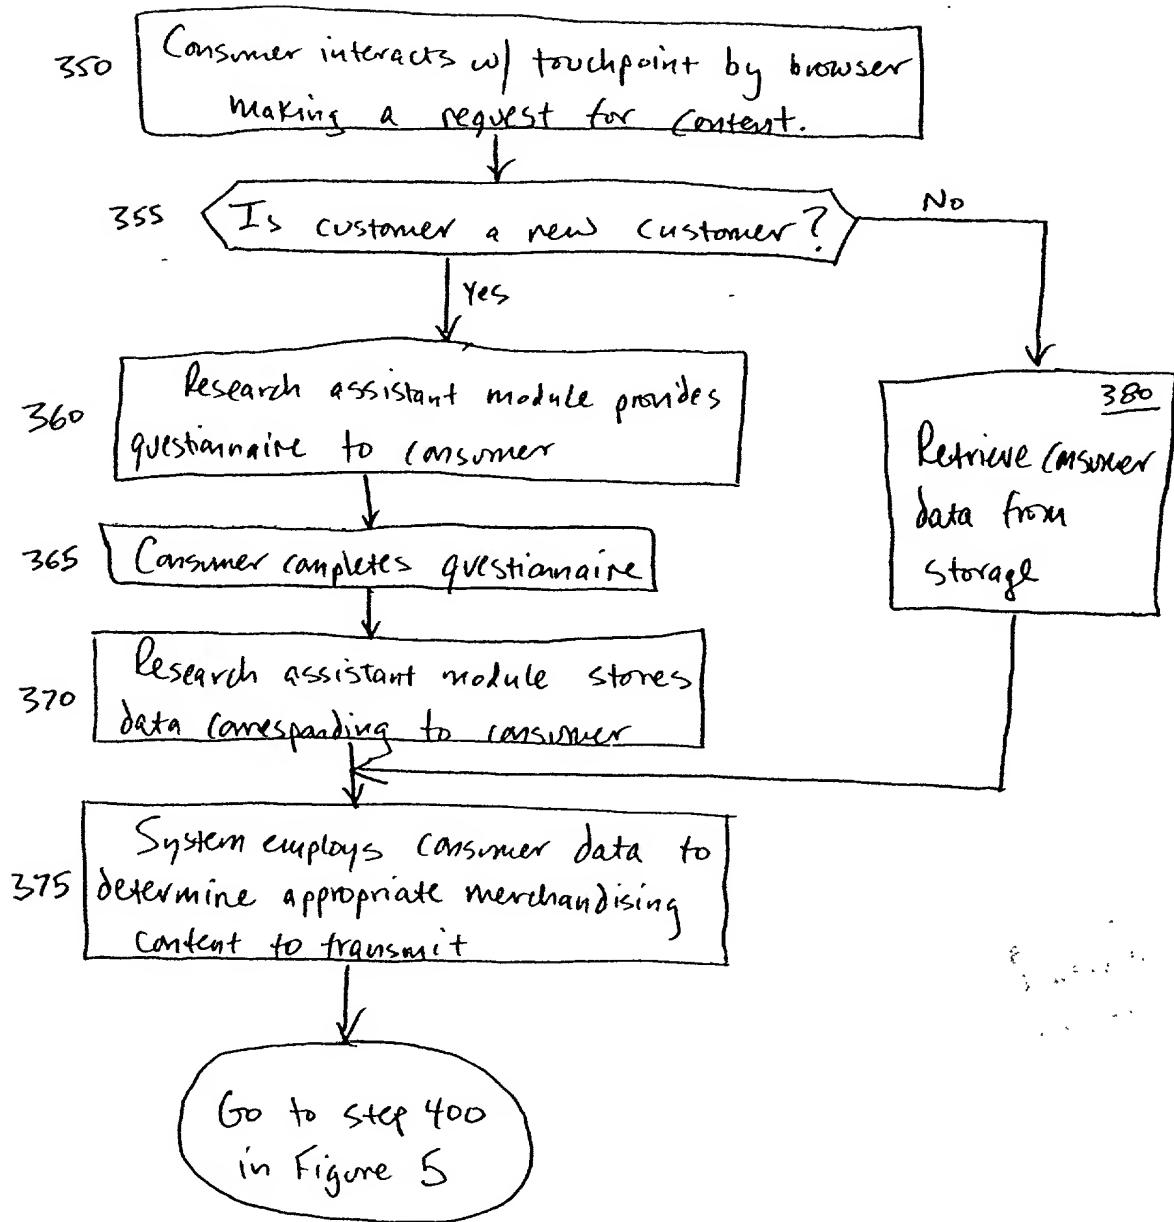 350
Consumer interacts w/ touchpoint by browser
making a request for content.
355
Is customer a new customer?
No
Yes
360
Research assistant module provides
questionnaire to consumer
380
Retrieve consumer
data from
storage
365
Consumer completes questionnaire
370
Research assistant module stores
data corresponding to consumer
375
System employs consumer data to
determine appropriate merchandising
content to transmit
Go to step 400
in Figure 5